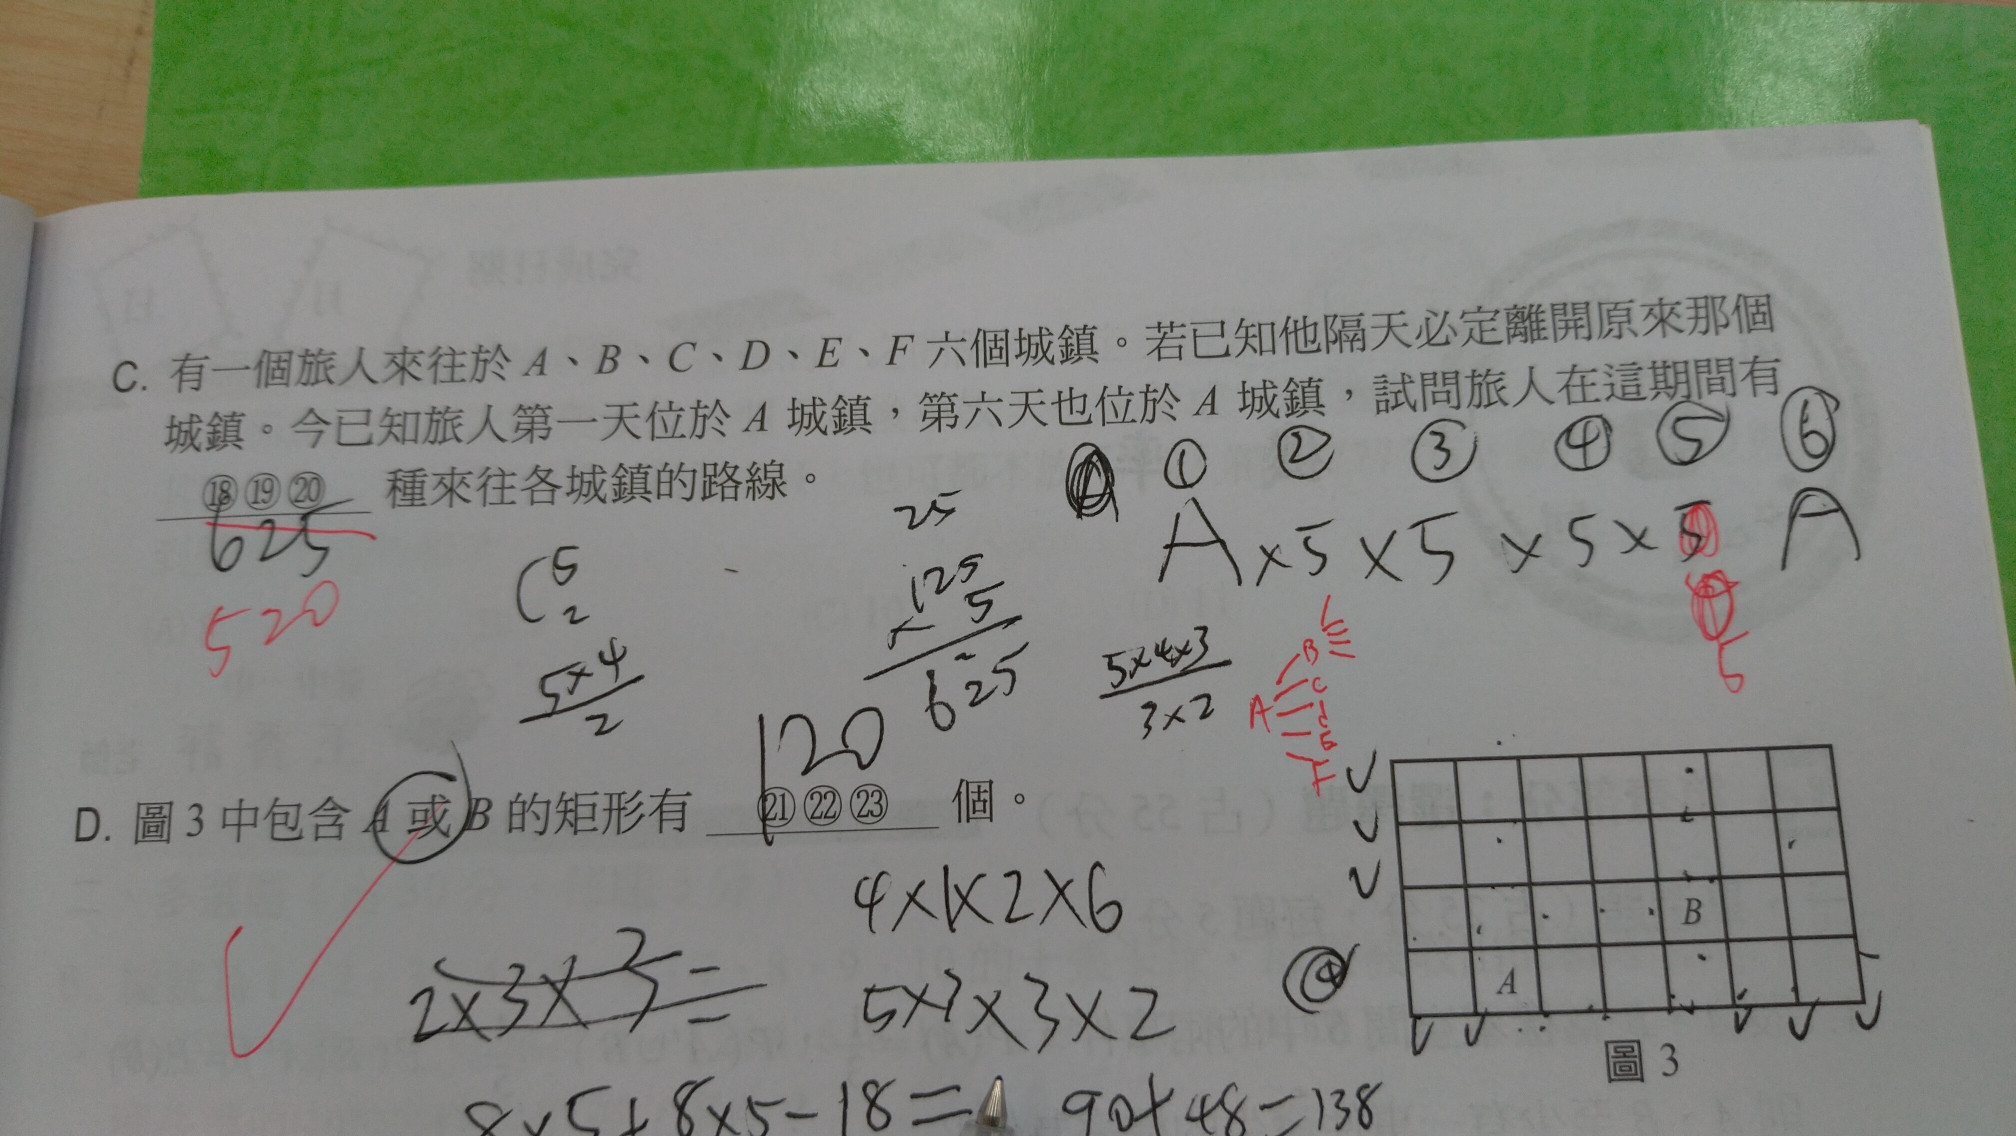 C. 有一個旅人來往於 A、B、C、D、E、F 六個城鎮。若已知他隔天必定離開原來那個
城鎮。今已知旅人第一天位於 A 城鎮，第六天也位於 A 城鎮，試問旅人在這期間有
⑱⑲⑳ 種來往各城鎮的路線。
① ② ③ ④ ⑤ ⑥
A×5×5×5×5 A
625
520
C 5 2
5×4
2
25
125
× 5
625
5×4×3
3×2
5
A B C d E F
120
D. 圖 3 中包含 A 或 B 的矩形有 ㉑㉒㉓ 個。
4×1×2×6
2×3×
=
5×3×3×2
B
A
圖 3
8×5+8×5-18=
90+48=138